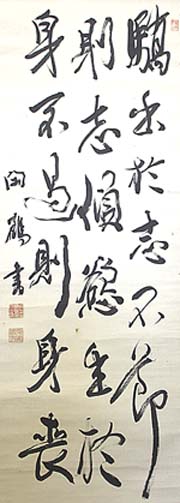 驕出於志不節
則志傾慾生於
身不遏則身喪
鶴書